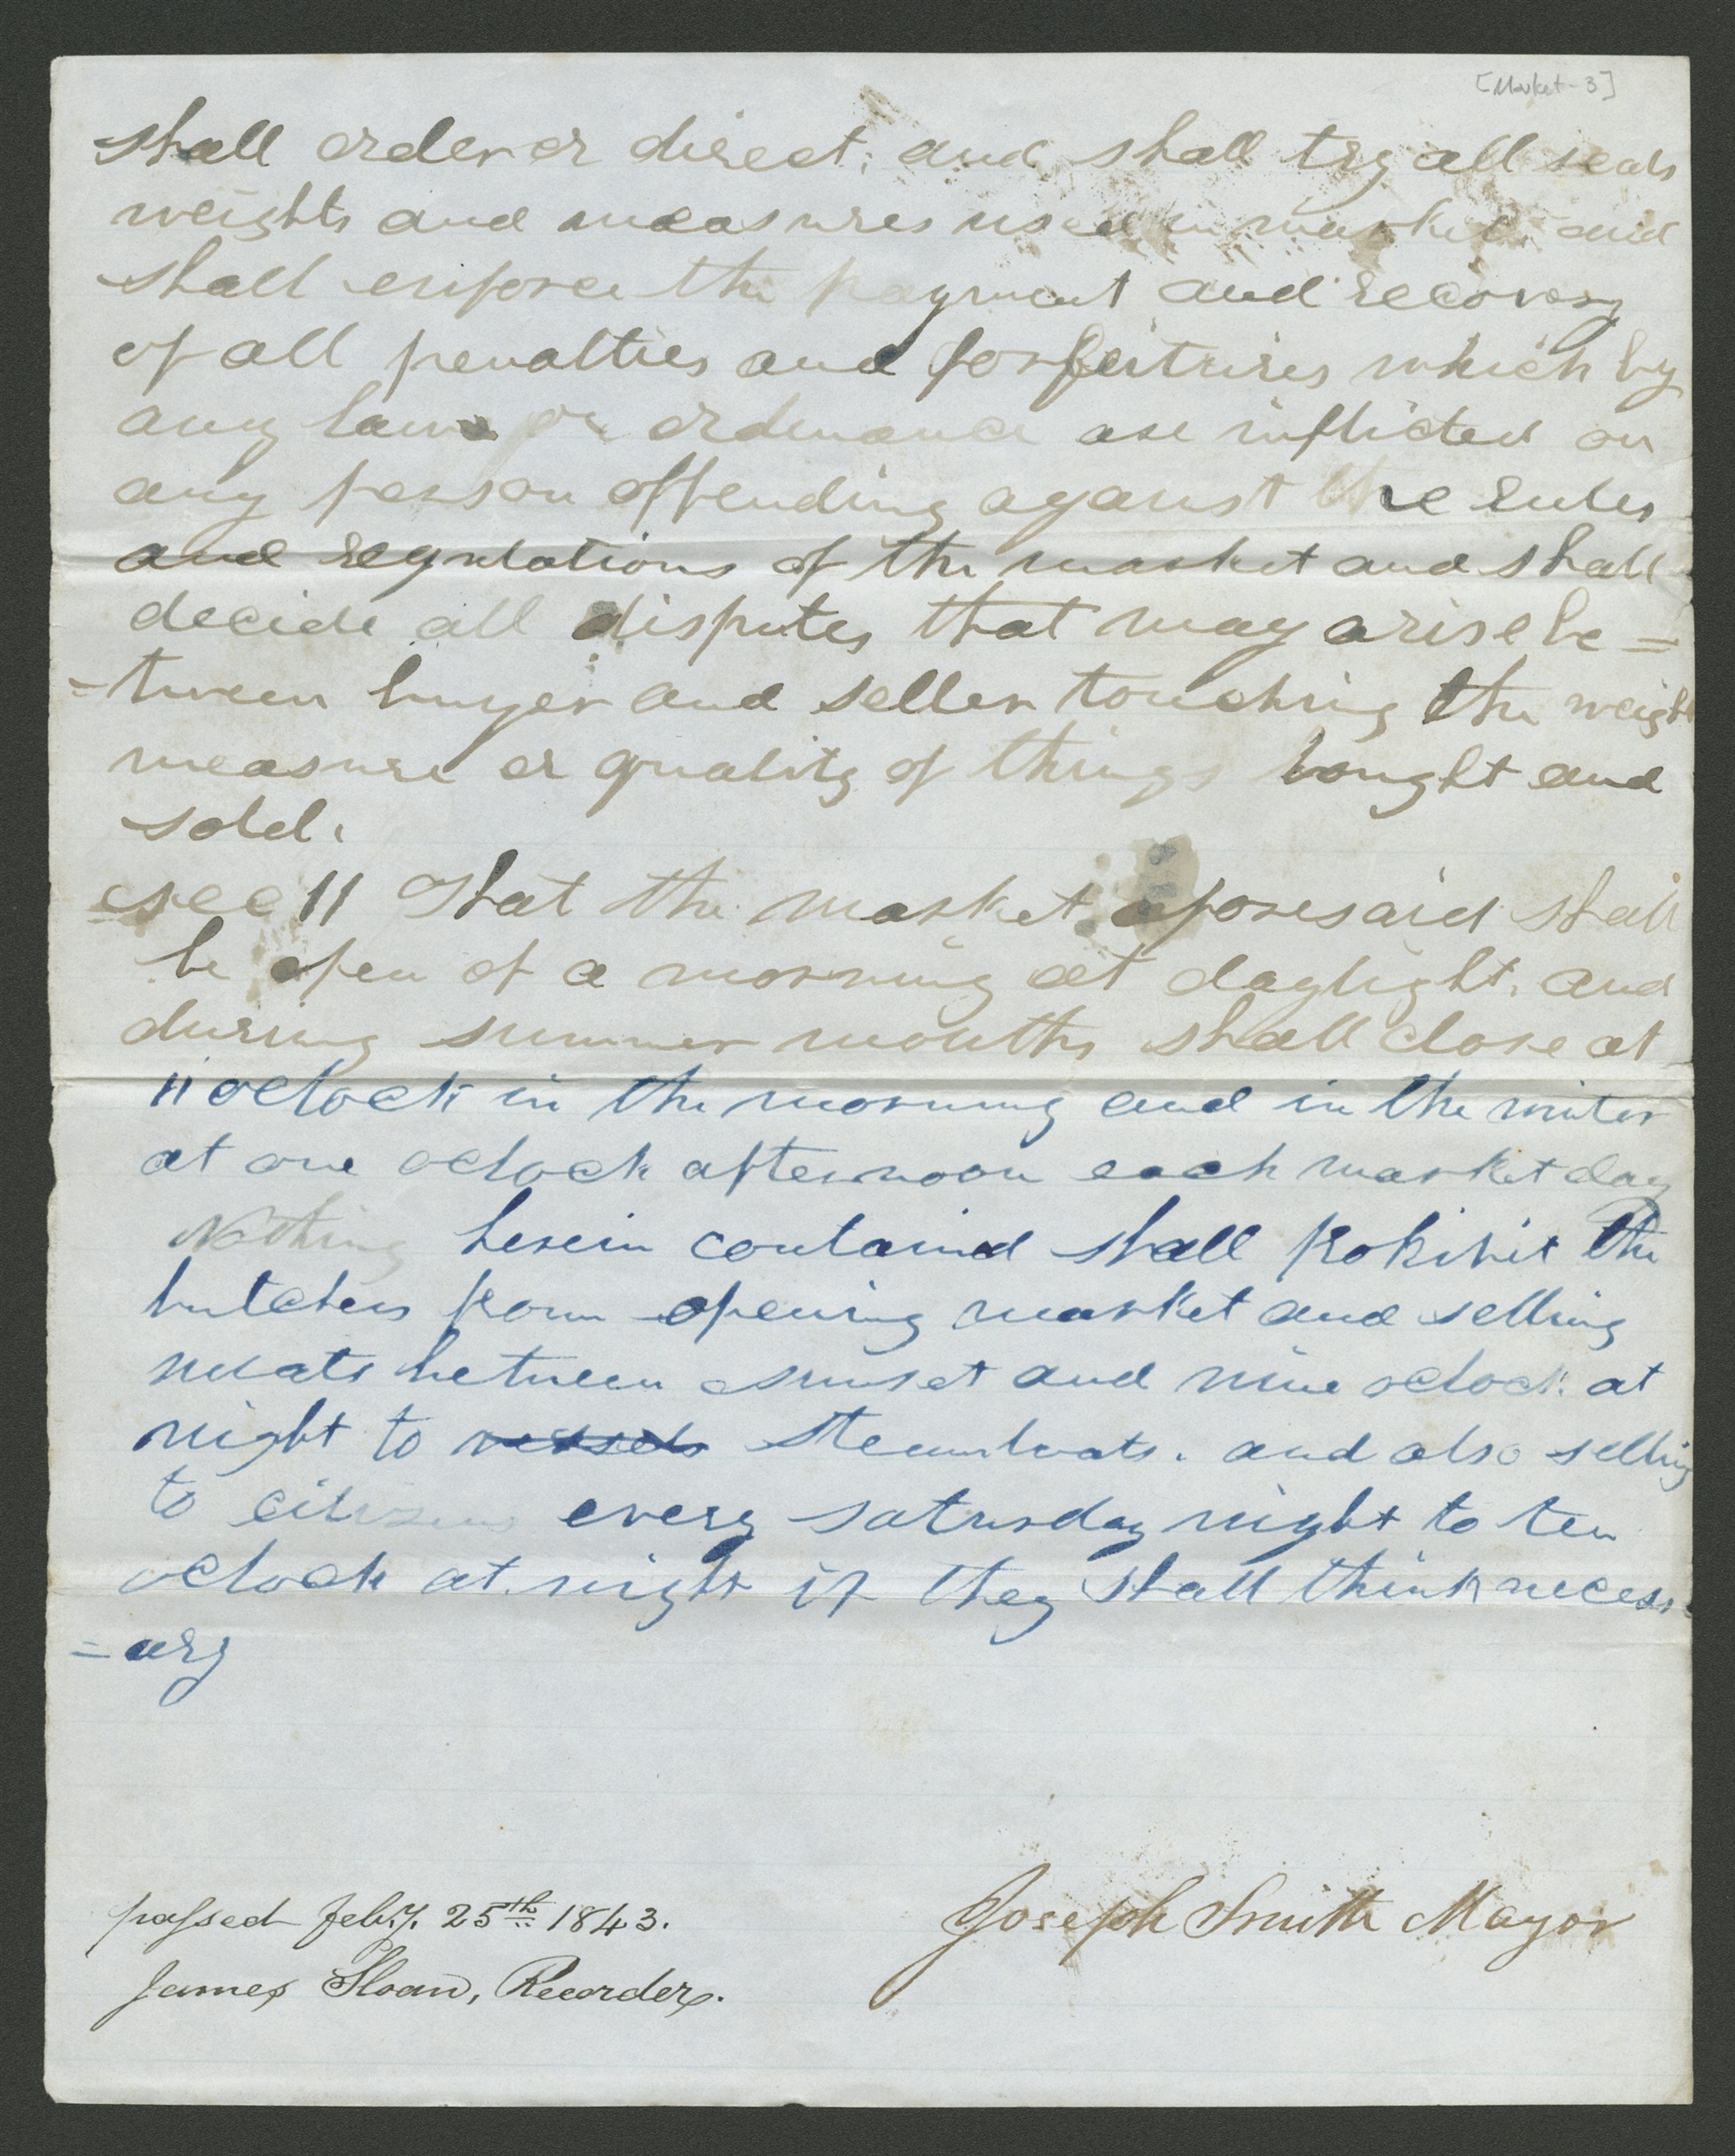 [Market-3]
shall order or direct, and shall try all seals
weights and measures used in market, and
shall enforce the payment and recovery
of all penalties and forfeitures which by
any laws or ordinance are inflicted on
any person offending against the rules
and regulations of the market and shall
decide all disputes that may arise be=
=tween buyer and seller touching the weight
measure or quality of things bought and
sold.
sec 11 That the market aforesaid shall
be open of a morning at daylight, and
during summer months shall close at
11 oclock in the morning and in the winter
at one oclock afternoon each market day
Nothing herein contained shall prohibit the
butchers from opening market and selling
meats between sunset and nine oclock at
night to vessels steamboats. and also selling
to citizens every saturday night to ten
oclock at night if they shall think necess=
=ary
passed feby. 25th 1843.
Joseph Smith Mayor
James Sloan, Recorder.